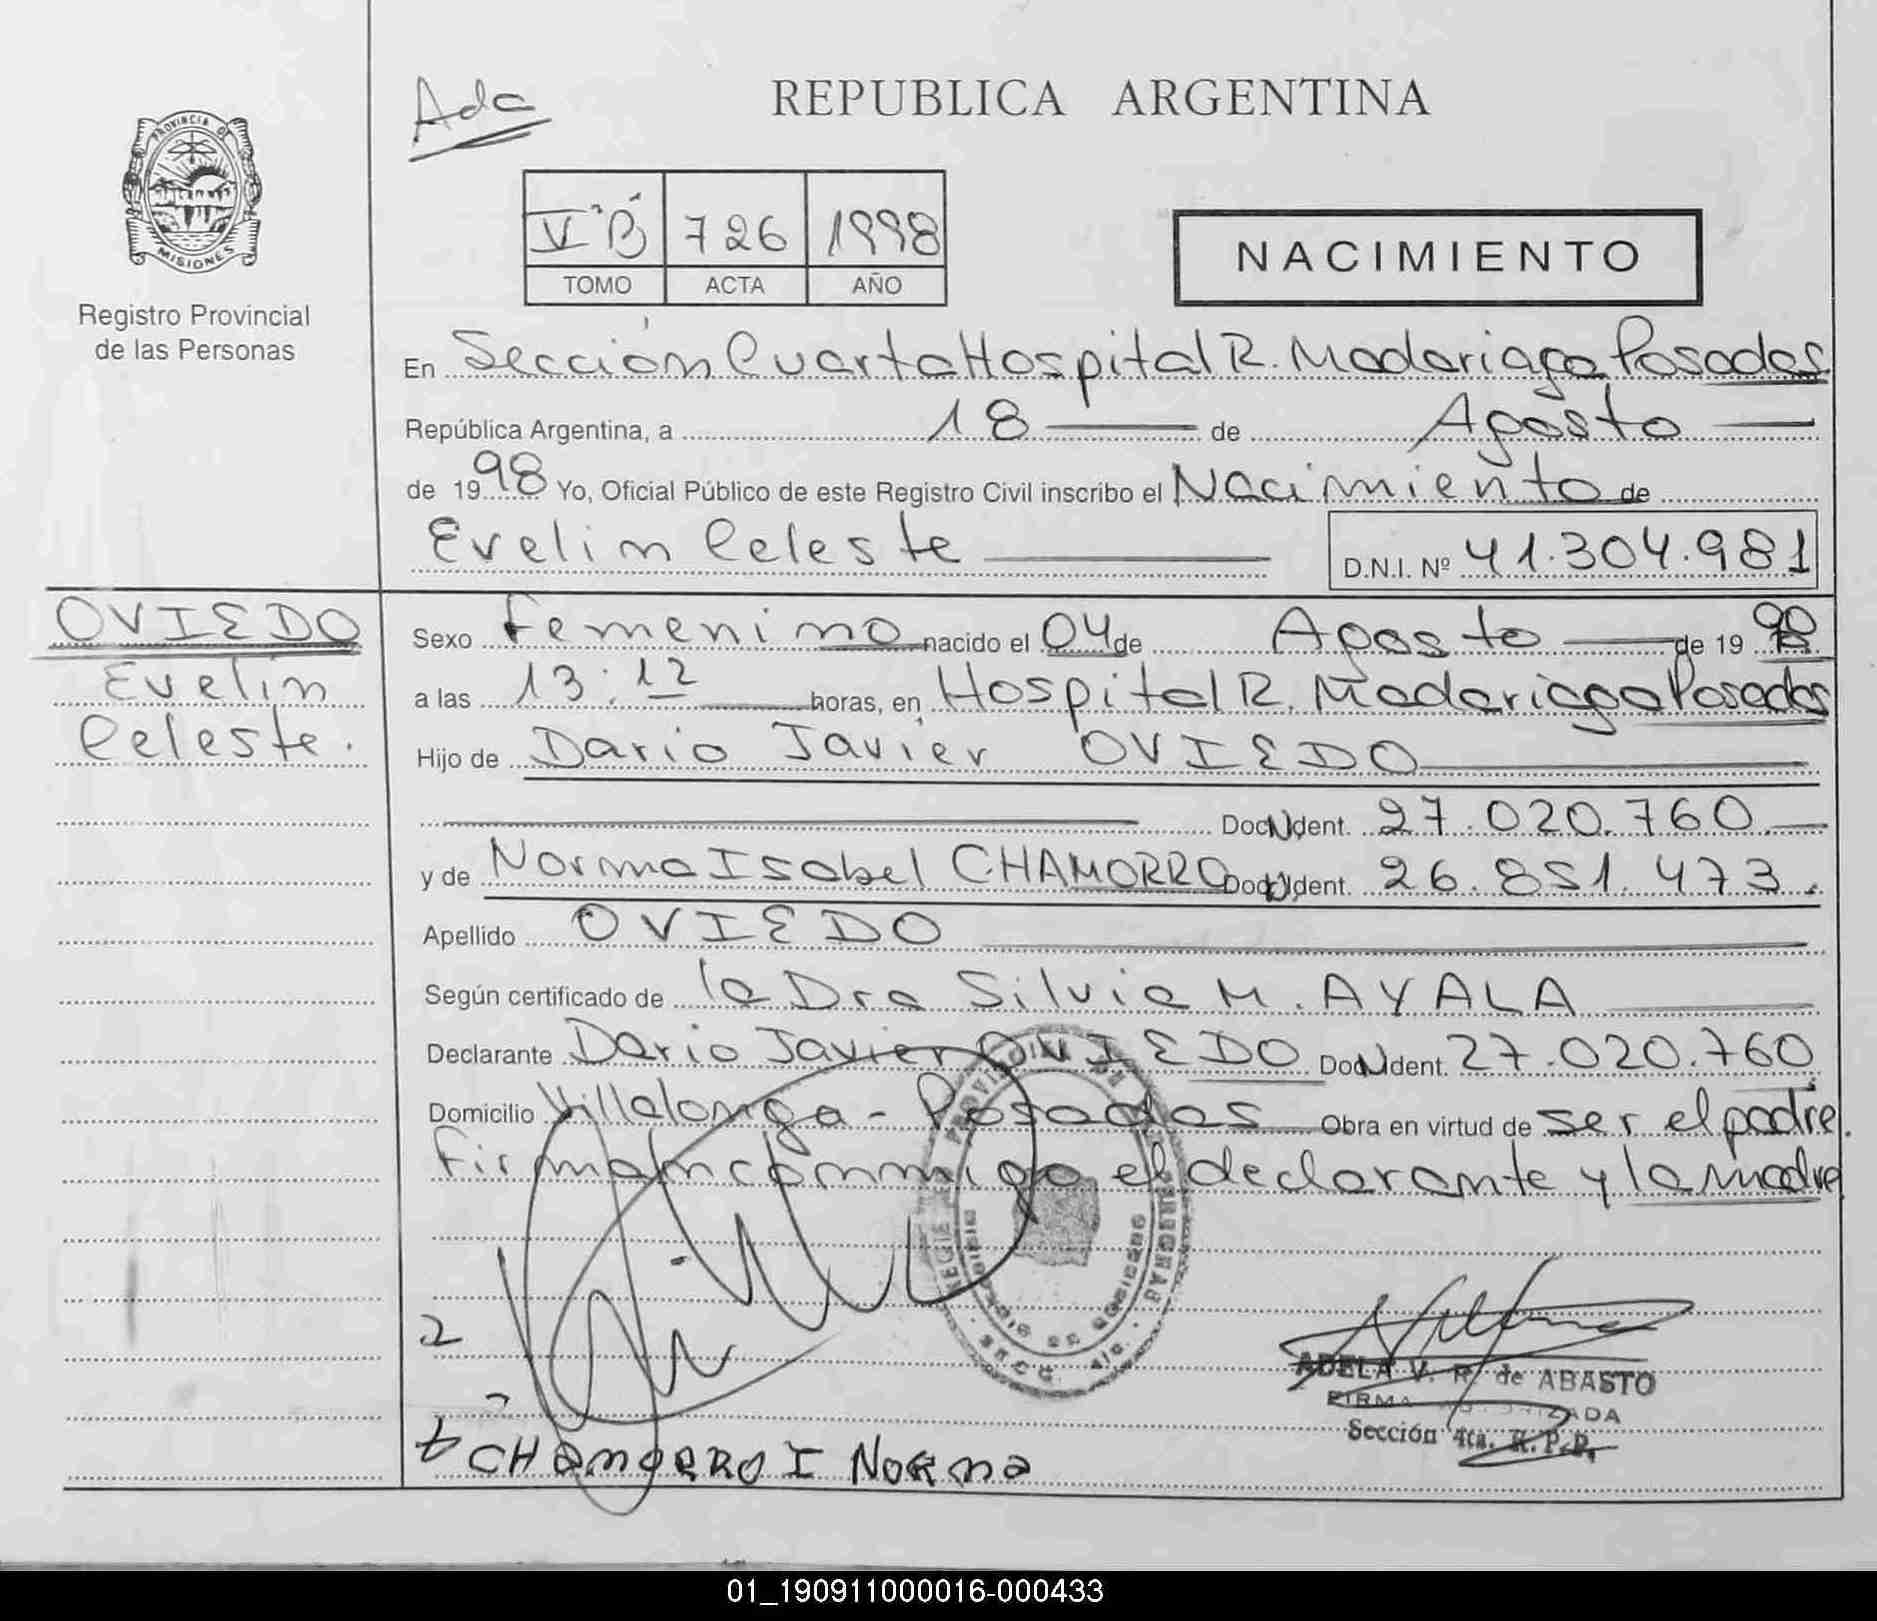 Ada
REPUBLICA ARGENTINA
PROVINCIA D
MISIONES
Registro Provincial
de las Personas
V "B" 726 1998
TOMO ACTA AÑO
NACIMIENTO
En Sección Cuarta Hospital R. Madariaga Posadas
República Argentina, a 18 de Agosto
de 1998 Yo, Oficial Público de este Registro Civil inscribo el Nacimiento de
Evelin Celeste
D.N.I. Nº 41.304.981
OVIEDO
Evelin
Celeste.
Sexo femenino nacido el 04 de Agosto de 1998
a las 13:12 horas, en Hospital R. Madariaga Posadas
Hijo de Dario Javier OVIEDO
Doc. Ident. 27.020.760
y de Norma Isabel CHAMORRO Doc. Ident. 26.851.473.
Apellido OVIEDO
Según certificado de la Dra Silvia M. AYALA
Declarante Dario Javier OVIEDO Doc. Ident. 27.020.760
Domicilio Villalonga - Posadas Obra en virtud de ser el padre.
Firman conmigo el declarante y la madre
ADELA V. R. de ABASTO
FIRMA AUTORIZADA
Sección 4ta. R.P.P.
CHAMORRO I NORMA
01_190911000016-000433